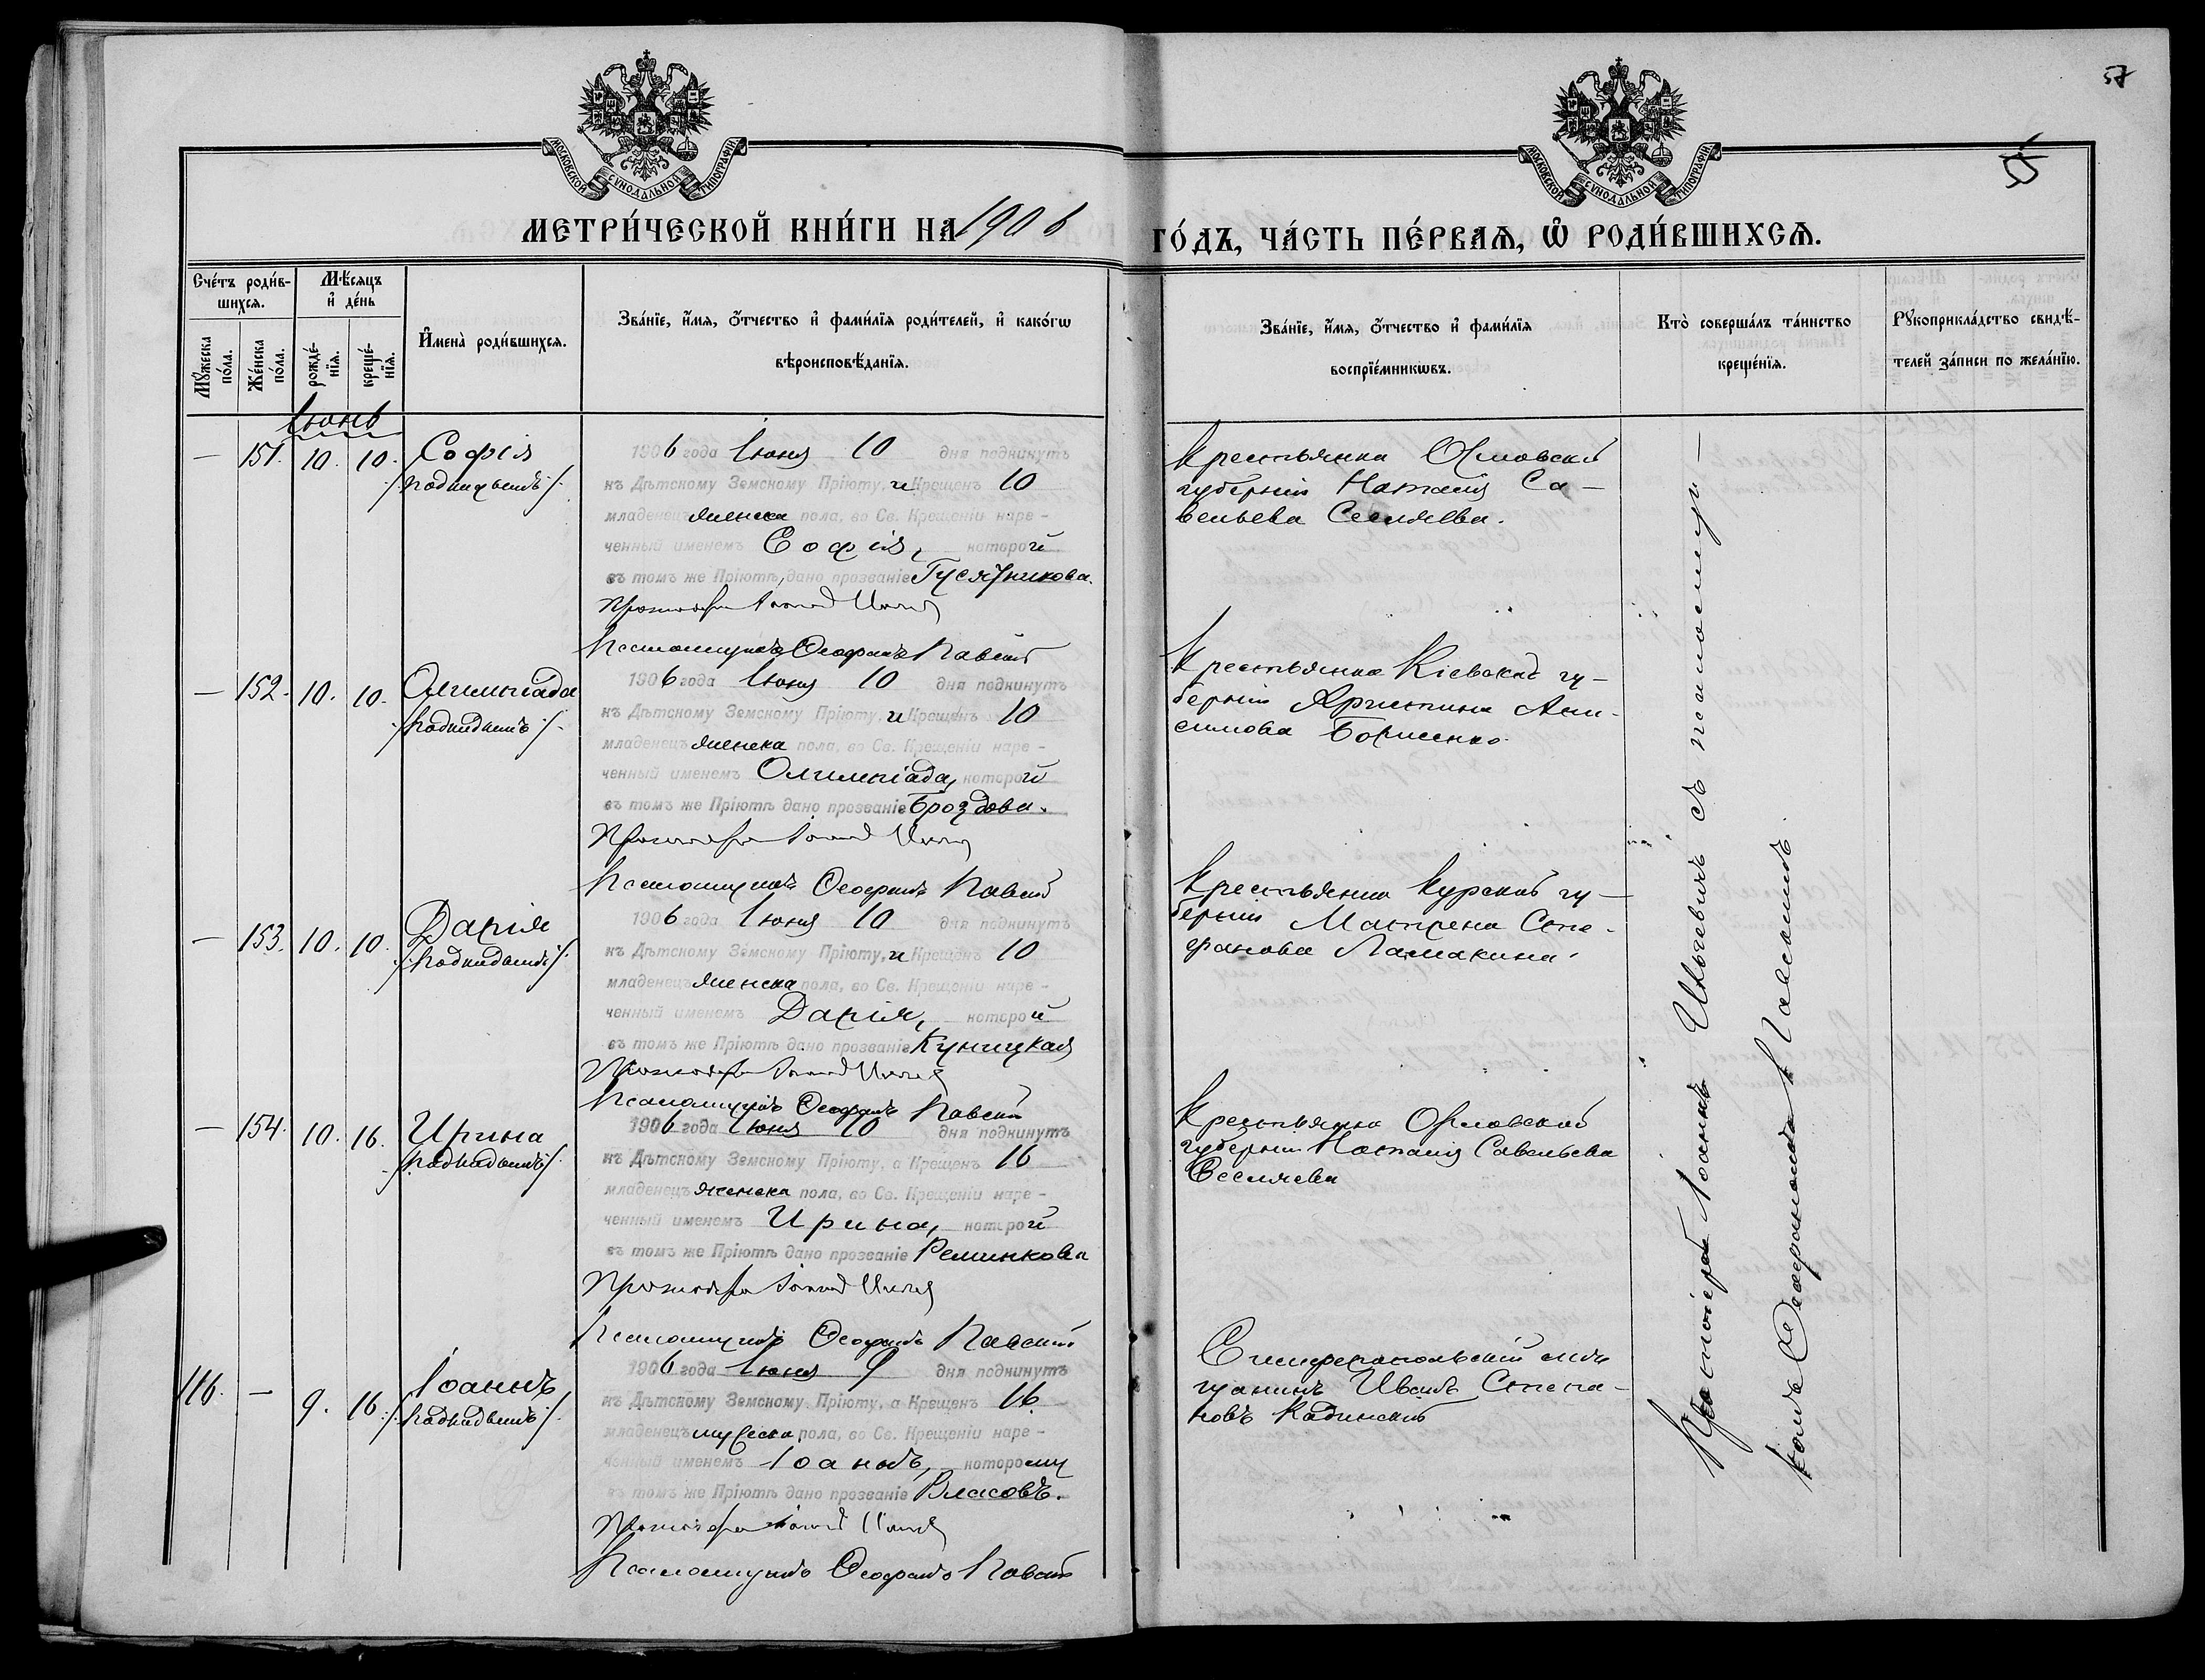 57
55
МОСКОВСКОЙ СѴНОДАЛЬНОЙ ТИПОГРАФІИ
МОСКОВСКОЙ СѴНОДАЛЬНОЙ ТИПОГРАФІИ
МЕТРИ́ЧЕСКОЙ КНИ́ГИ НА 1906
ГО́ДЪ, ЧА́СТЬ ПЕ́РВАЯ, Ѡ РОДИ́ВШИХСЯ.
Сче́тъ роди́в-
шихся.
Мѣ́сяцъ
и҆ де́нь
Мꙋ́жеска
по́ла.
Же́нска
по́ла.
рожде́-
нїя.
креще́-
нїя.
И҆мена̀ роди́вшихся.
Зва́нїе, и҆́мя, ѻ҆́тчество и҆ фами́лїя роди́телей, и҆ како́гѡ
вѣроисповѣ́данїя.
Зва́нїе, и҆́мя, ѻ҆́тчество и҆ фами́лїя
воспрїе́мникѡвъ.
Кто̀ соверша́лъ та́инство
креще́нїя.
Рꙋкоприкла́дство свидѣ́-
телей за́писи по жела́нїю.
Іюнь
— 151. 10. 10. Софія
/подкидышъ/
1906 года Іюня 10 дня подкинутъ
къ Дѣтскому Земскому Пріюту, и Крещенъ 10
младенецъ женска пола, во Св. Крещеніи наре-
ченный именемъ Софія, которой
въ томъ же Пріютѣ, дано прозваніе Гусятникова.
Протоіерей Іоаннъ
Псаломщикъ Ѳеофанъ Павскій
Крестьянка Орловской
губерніи Наталія Са-
вельева
— 152. 10. 10. Олимпіада
/подкидышъ/
1906 года Іюня 10 дня подкинутъ
къ Дѣтскому Земскому Пріюту, и Крещенъ 10
младенецъ женска пола, во Св. Крещеніи наре-
ченный именемъ Олимпіада, которой
въ томъ же Пріютѣ дано прозваніе Броздова.
Протоіерей Іоаннъ
Псаломщикъ Ѳеофанъ Павскій
Крестьянка Кіевской гу-
берніи Христина Ани-
симова Борисенко
— 153. 10. 10. Дарія
/подкидышъ/
1906 года Іюня 10 дня подкинутъ
къ Дѣтскому Земскому Пріюту, и Крещенъ 10
младенецъ женска пола, во Св. Крещеніи наре-
ченный именемъ Дарія, которой
въ томъ же Пріютѣ дано прозваніе Куницкая
Протоіерей Іоаннъ
Псаломщикъ Ѳеофанъ Павскій
Крестьянка Курской гу-
берніи Матрена Сте-
фанова Ламакина.
— 154. 10. 16. Ирина
/подкидышъ/
1906 года Іюня 10 дня подкинутъ
къ Дѣтскому Земскому Пріюту, а Крещенъ 16
младенецъ женска пола, во Св. Крещеніи наре-
ченный именемъ Ирина, которой
въ томъ же Пріютѣ дано прозваніе Реминкова
Протоіерей Іоаннъ
Псаломщикъ Ѳеофанъ Павскій
Крестьянка Орловской
губерніи Наталія Савельева
116. — 9. 16. Іоаннъ
/подкидышъ/
1906 года Іюня 9 дня подкинутъ
къ Дѣтскому Земскому Пріюту, а Крещенъ 16
младенецъ мужеска пола, во Св. Крещеніи наре-
ченный именемъ Іоаннъ, которому
въ томъ же Пріютѣ дано прозваніе Власовъ.
Протоіерей Іоаннъ
Псаломщикъ Ѳеофанъ Павскій
Симферопольскій мѣ-
щанинъ Иванъ Степа-
новъ Кадинскій
Протоіерей Іоаннъ съ псаломщи-
комъ Ѳеофаномъ Павскимъ.